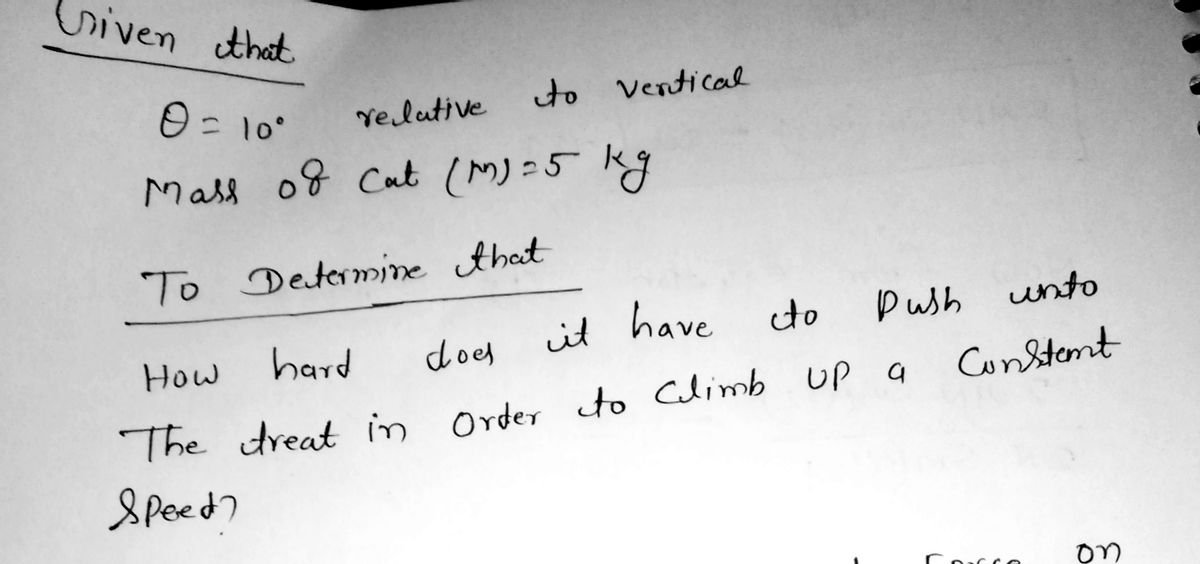 Given that
θ = 10° relative to vertical
Mass of Cat (m) = 5 kg
To Determine that
How hard does it have to push unto
The treat in order to Climb up a Constant
Speed?
on